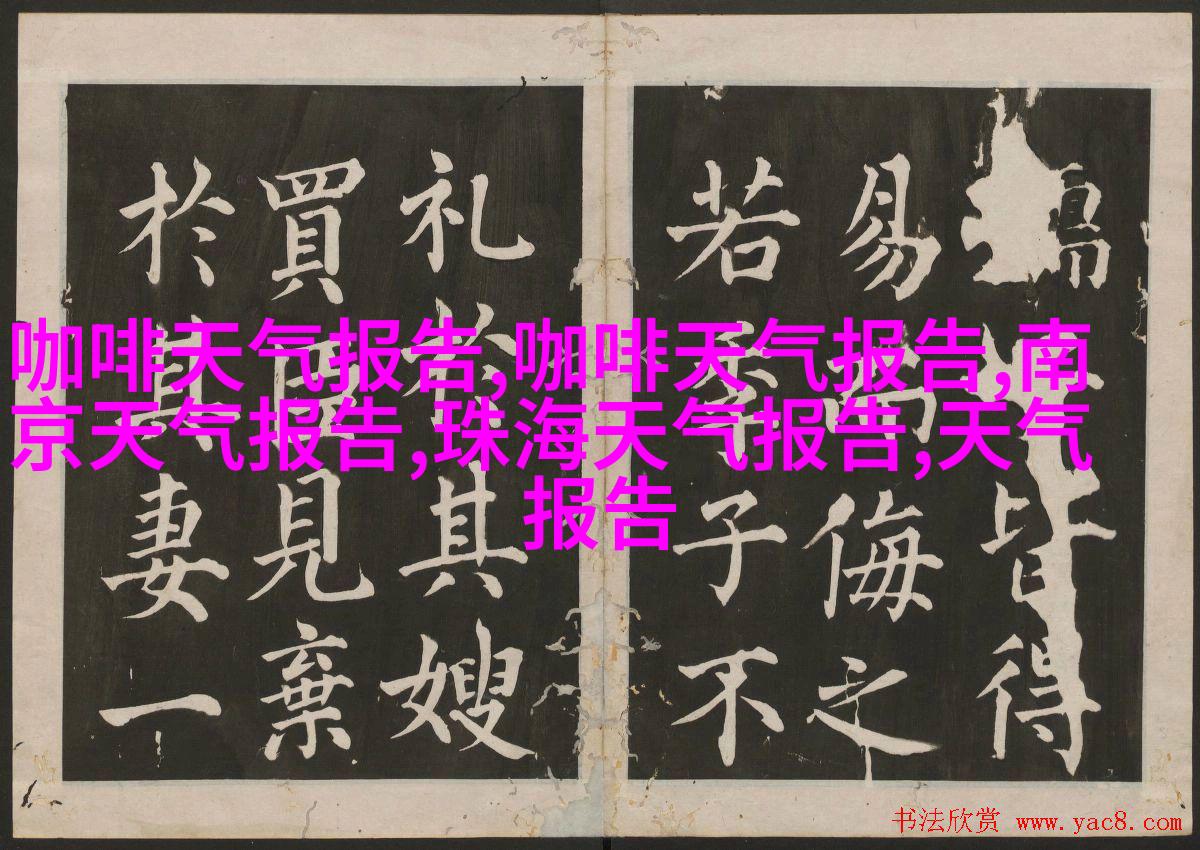 咖啡天气报告,咖啡天气报告,南
京天气报告,珠海天气报告,天气
报告
皆得
易 侮之
若 子不
礼 其嫂
買 見棄
於 妻一
书法欣赏 www.yac8.com